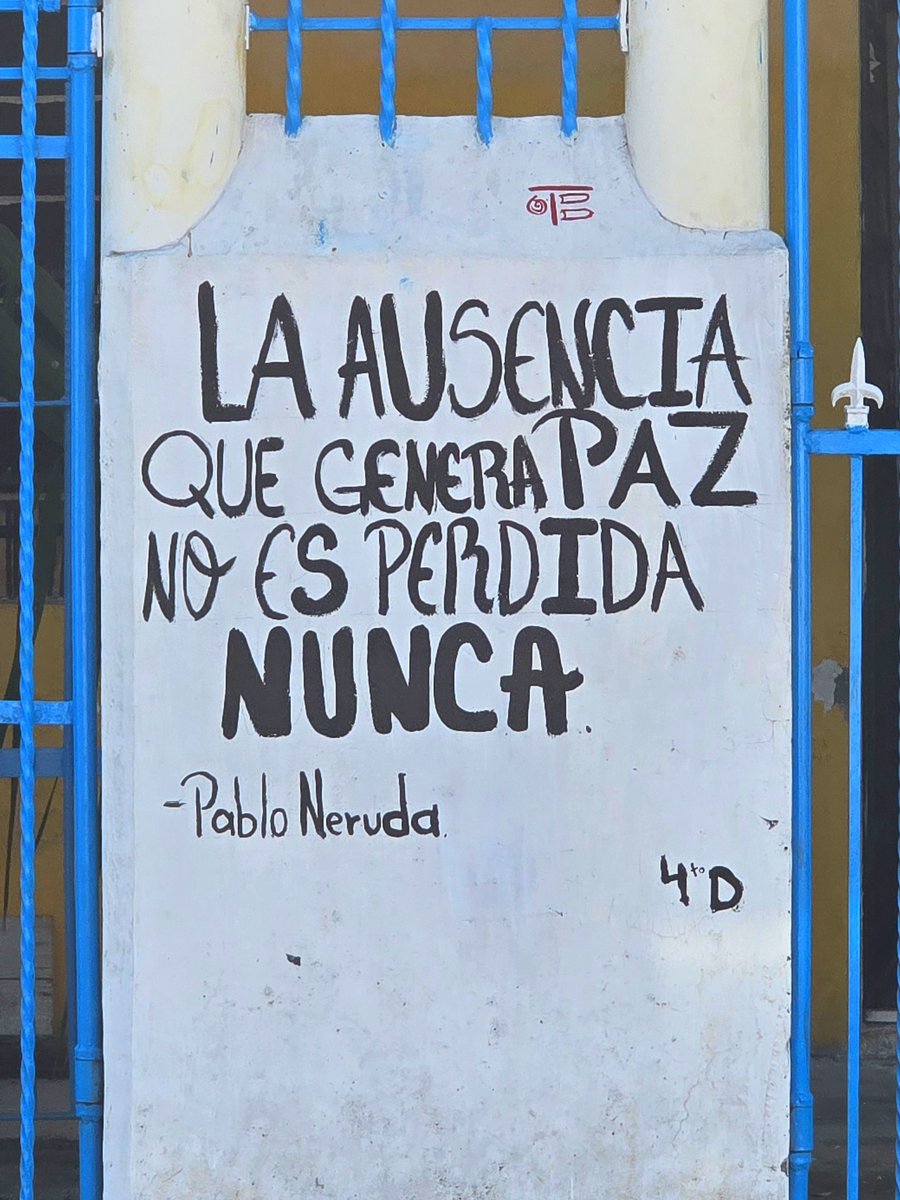 LA AUSENCIA
QUE GENERA PAZ
NO ES PERDIDA
NUNCA.
-Pablo Neruda.
4to D